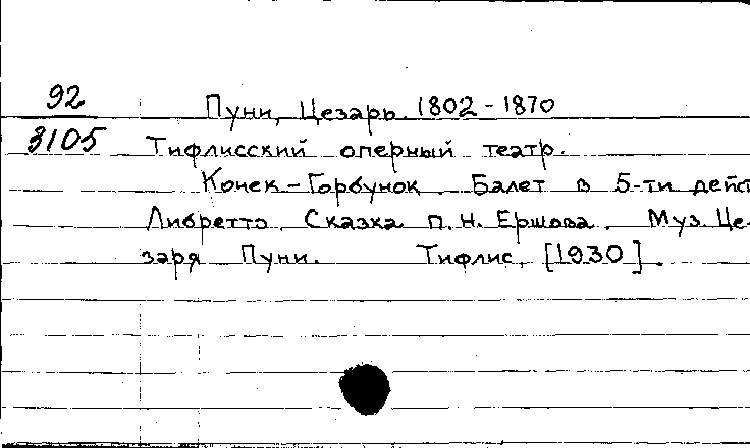 92
Пуни, Цезарь. 1802-1870
3105
Тифлисский оперный театр.
Конек-Горбунок. Балет в 5-ти дейст
Либретто. Сказка П.Н. Ершова. Муз. Це-
заря Пуни. Тифлис, [1930].